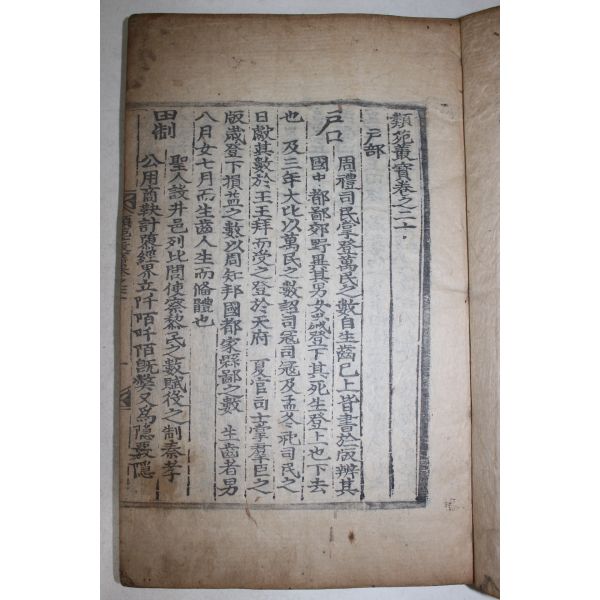 類苑叢寶卷之二十
戶部
戶口
周禮司民掌登萬民之數自生齒已上皆書於版辨其
國中都鄙郊野異其男女歲登下其死生登上也下去
也 及三年大比以萬民之數詔司寇司寇及孟冬祀司民之
日獻其數於王王拜而受之登於天府 夏官司士掌羣臣之
版歲登下損益之數以周知邦國都家縣鄙之數 生齒者男
八月女七月而生齒人生而備體也
田制
聖人設井邑列比閭使察黎民之數賦役之制秦孝
公用商鞅計隳經界立阡陌阡陌旣弊又爲隱覈隱